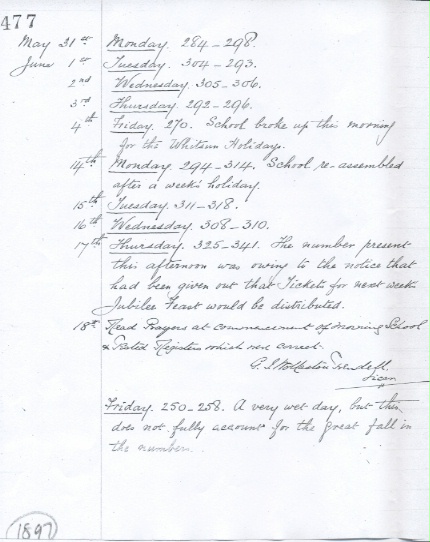 477
May 31st Monday. 284-298.
June 1st Tuesday. 304-293.
2nd Wednesday. 305-306.
3rd Thursday. 292-296.
4th Friday. 270. School broke up this morning
for the Whitsun Holidays.
14th Monday. 294-314. School re-assembled
after a week's holiday.
15th Tuesday. 311-318.
16th Wednesday. 308-310.
17th Thursday. 325-341. The number present
this afternoon was owing to the notice that
had been given out that Tickets for next week's
Jubilee Feast would be distributed.
18th Read Prayers at commencement of Morning School
& Tested Registers which were correct.
G. S.
Vicar
Friday. 250-258. A very wet day, but this
does not fully account for the great fall in
the number.
1897